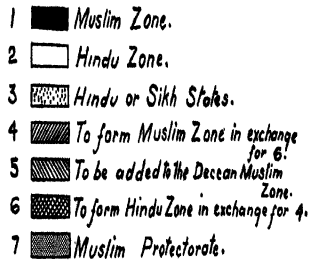 1 Muslim Zone.
2 Hindu Zone.
3 Hindu or Sikh States.
4 To form Muslim Zone in exchange
for 6.
5 To be added to the Deccan Muslim
Zone.
6 To form Hindu Zone in exchange for 4.
7 Muslim Protectorate.